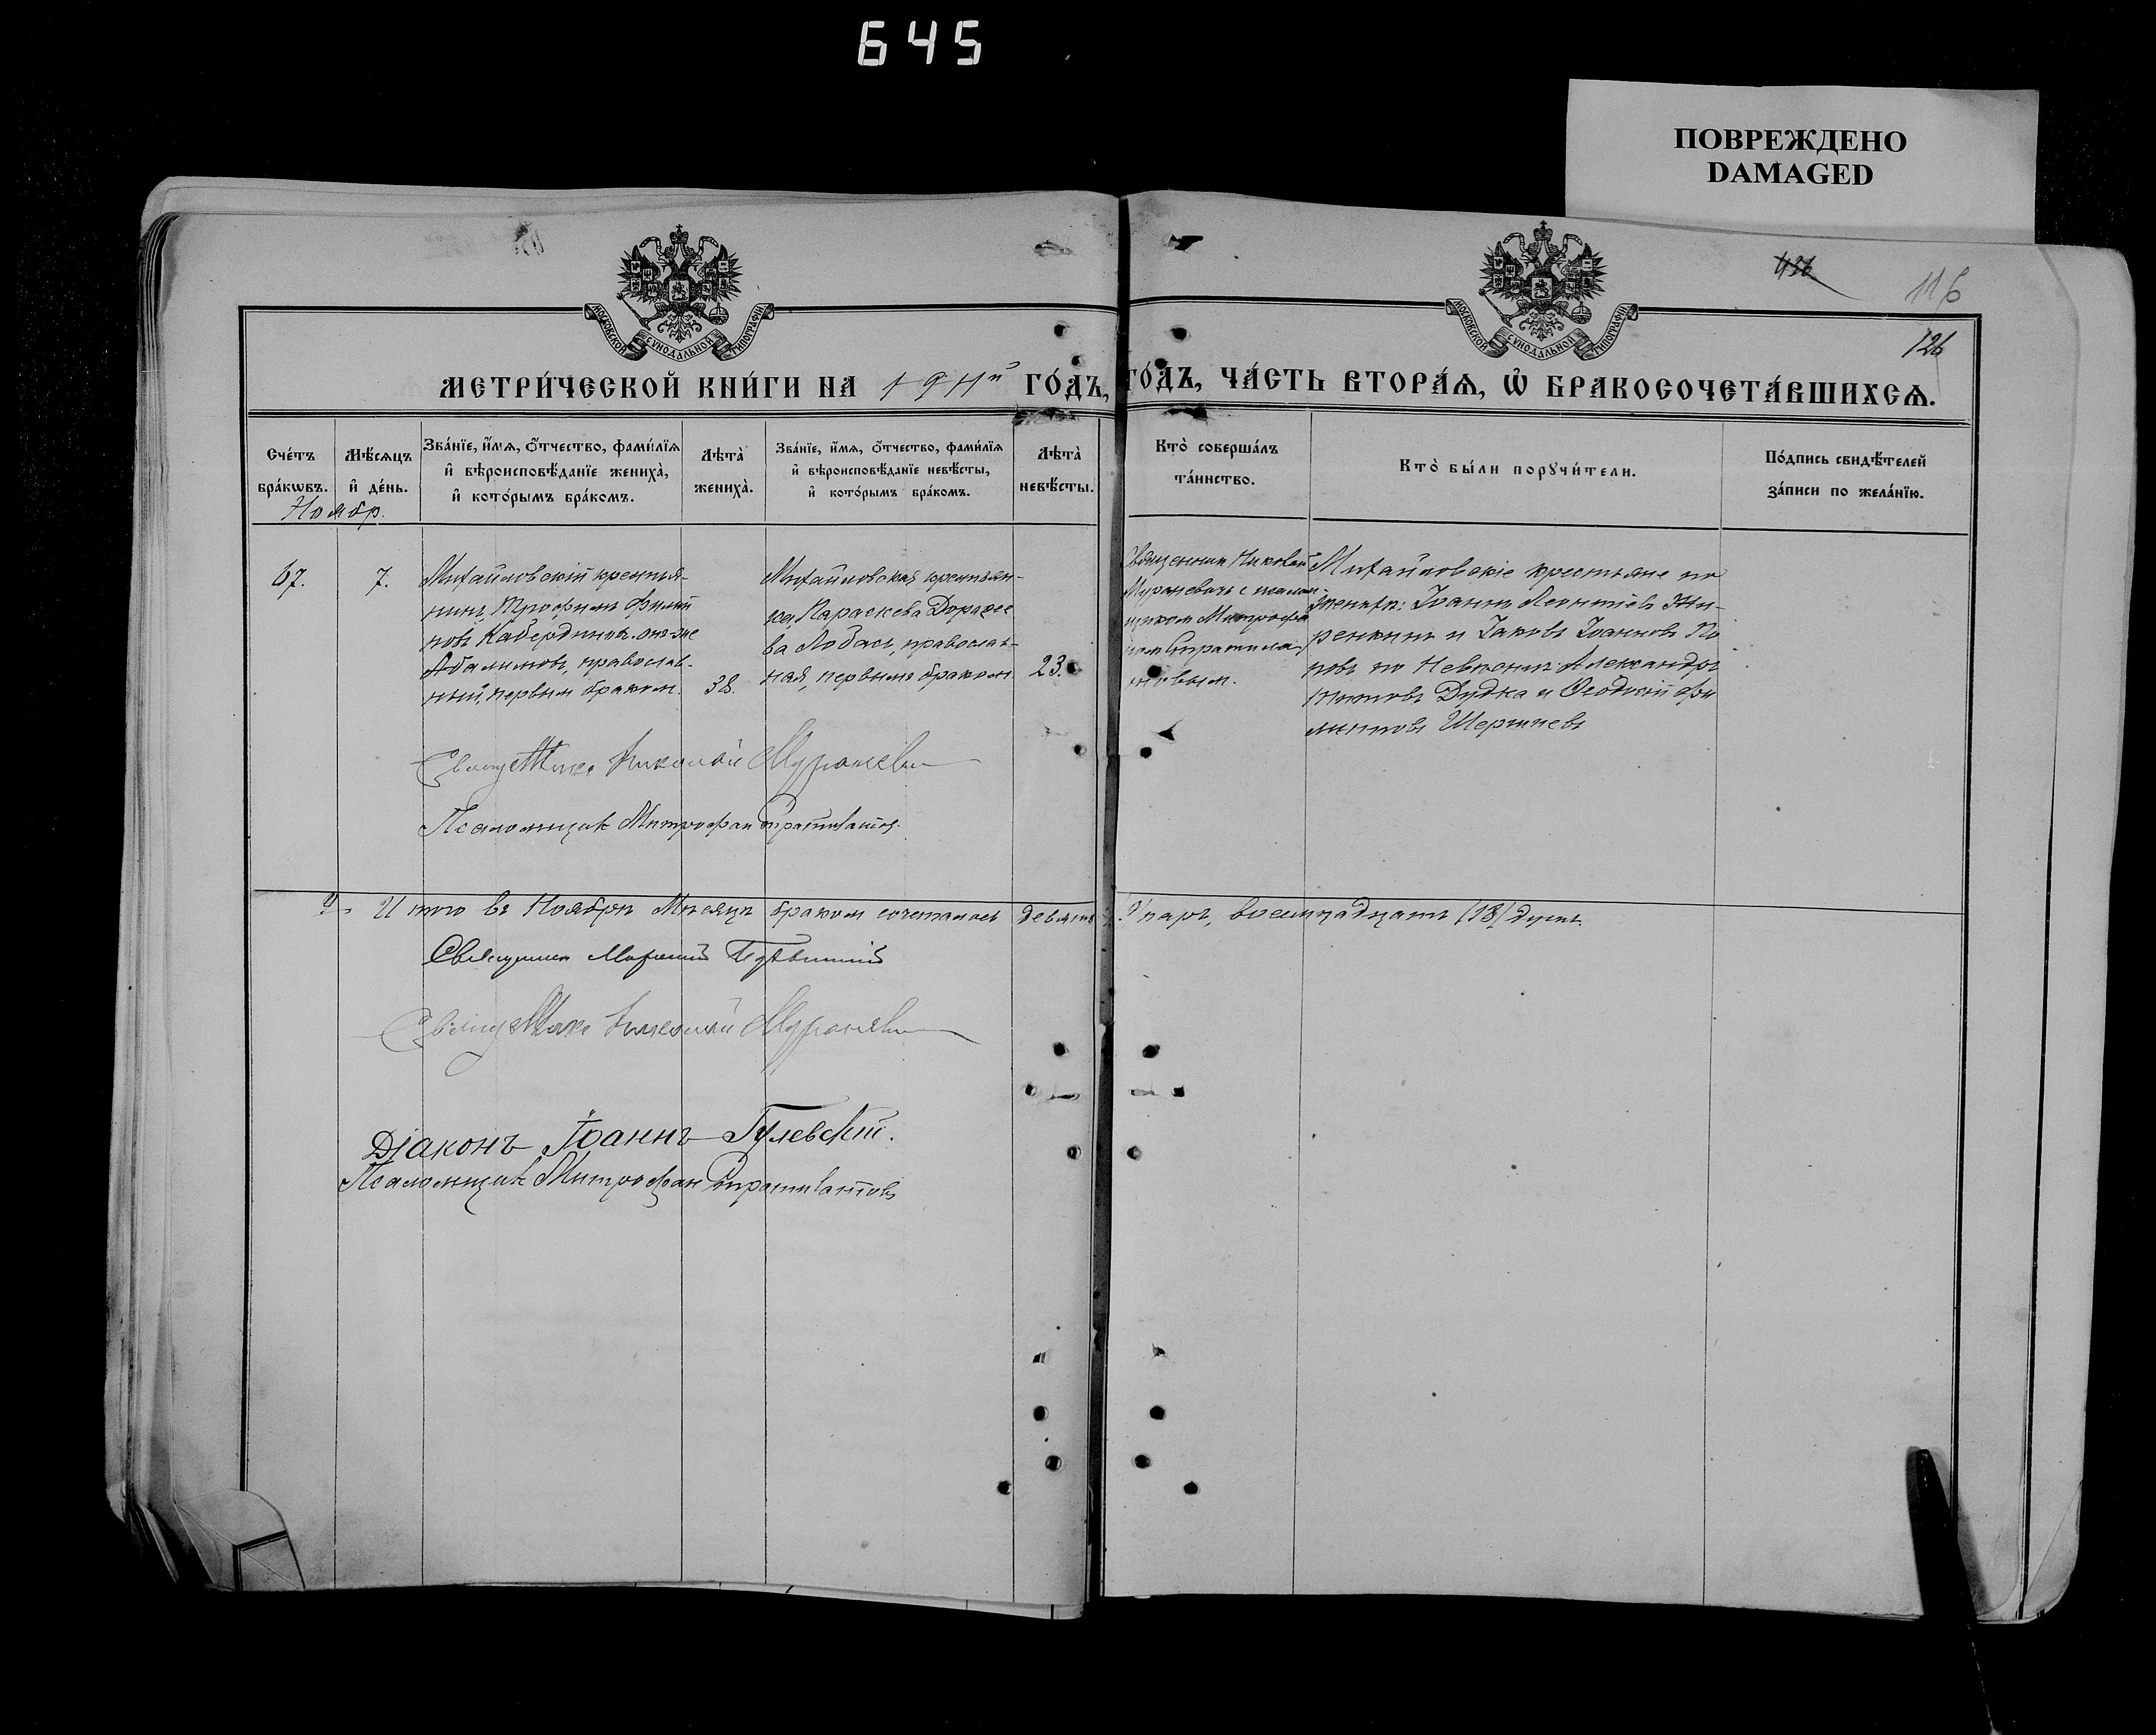 645
ПОВРЕЖДЕНО
DAMAGED
МОСКОВСКОЙ СѴНОДАЛЬНОЙ ТИПОГРАФІИ
МОСКОВСКОЙ СѴНОДАЛЬНОЙ ТИПОГРАФІИ
436
116
126
МЕТРИ́ЧЕСКОЙ КНИ́ГИ НА 1911й ГО́ДЪ,
ГО́ДЪ, ЧА́СТЬ ВТОРА́Ѧ, Ѡ҆ БРАКОСОЧЕТА́ВШИХСѦ.
Сче́тъ бра́кѡвъ.
Мѣ́сяцъ и҆ де́нь.
Зва́нїе, и҆́мѧ, ѻ҆́тчество, фами́лїѧ
и҆ вѣроисповѣ́данїе жениха̀,
и҆ кото́рымъ бра́комъ.
Лѣта̀ жениха̀.
Зва́нїе, и҆́мѧ, ѻ҆́тчество, фами́лїѧ
и҆ вѣроисповѣ́данїе невѣ́сты,
и҆ кото́рымъ бра́комъ.
Лѣта̀ невѣ́сты.
Кто̀ соверша́лъ
та́инство.
Кто̀ бы́ли порꙋчи́тели.
По́дпись свидѣ́телей
за́писи по жела́нїю.
Ноябр.
67.
7.
Михайловскій крестья-
нинъ, Трофимъ Филип
повъ Кабердинъ. онъ-же
Абалимовъ, православ-
ный, первым браком.
38.
Михайловская крестьян-
ка, Параскева Дорофее
ва Лобась, православ-
ная, первымъ браком.
23.
Священник Николай
Муроневичъ с псалом
щиком Митрофа
ном Стратила
товым.
Михайловскіе крестьяне по
женихѣ: Іоаннъ Леонтіевъ Жи-
ренкинъ и Іаковъ Іоанновъ По
повъ по Невѣстѣ: Александръ
Титовъ Дудка и Ѳеодосій Фи
липповъ Шерстневъ
Священникъ Николай Муроневич
Псаломщик Митрофан Стратилатов.
9. Итого въ Ноябрѣ Мѣсяцѣ браком сочеталось девять
9 паръ, восемнадцать (18) душъ.
Священник
Священникъ Николай Муроневич
Діаконъ Іоаннъ Гулевскій.
Псаломщик Митрофан Стратилатовъ